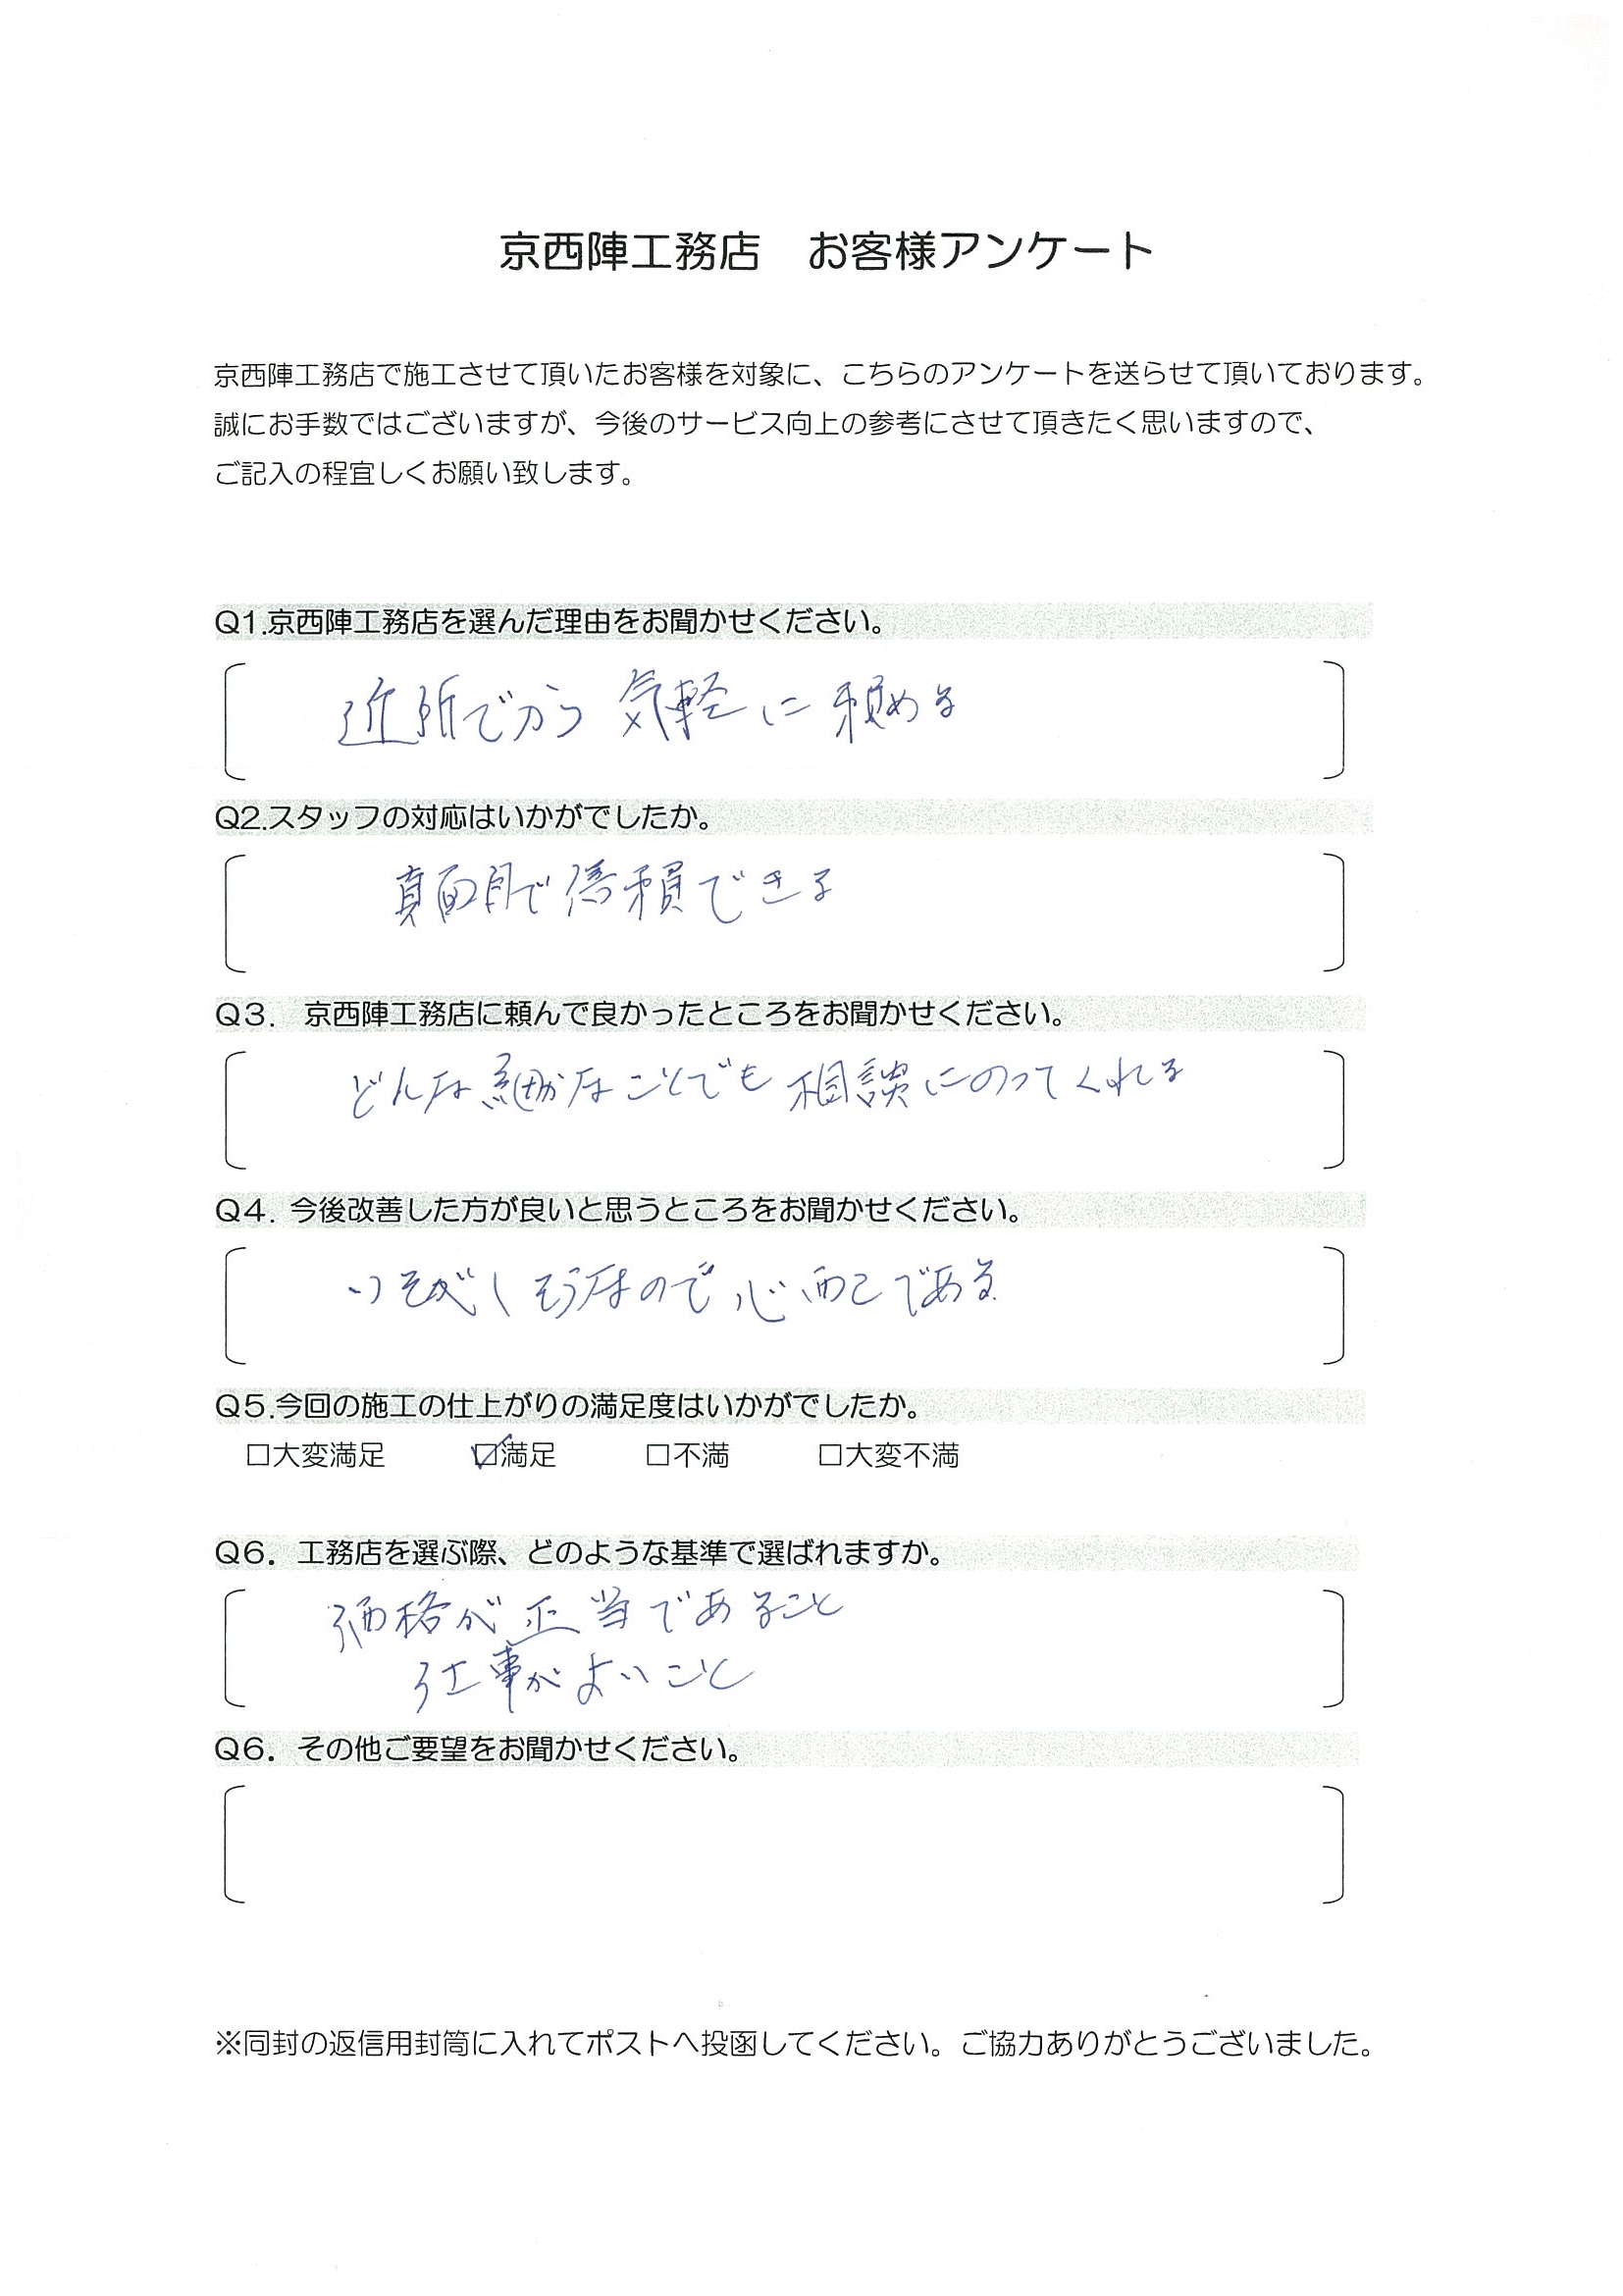 京西陣工務店　お客様アンケート
京西陣工務店で施工させて頂いたお客様を対象に、こちらのアンケートを送らせて頂いております。
誠にお手数ではございますが、今後のサービス向上の参考にさせて頂きたく思いますので、
ご記入の程宜しくお願い致します。
Q1.京西陣工務店を選んだ理由をお聞かせください。
近所でかつ 気軽に頼める
Q2.スタッフの対応はいかがでしたか。
真面目で信頼できる
Q3.　京西陣工務店に頼んで良かったところをお聞かせください。
どんな細かなことでも相談にのってくれる
Q4. 今後改善した方が良いと思うところをお聞かせください。
いそがしそうなので心配である
Q5.今回の施工の仕上がりの満足度はいかがでしたか。
□大変満足　☑満足　□不満　□大変不満
Q6. 工務店を選ぶ際、どのような基準で選ばれますか。
価格が正当であること
仕事がよいこと
Q6. その他ご要望をお聞かせください。
※同封の返信用封筒に入れてポストへ投函してください。ご協力ありがとうございました。